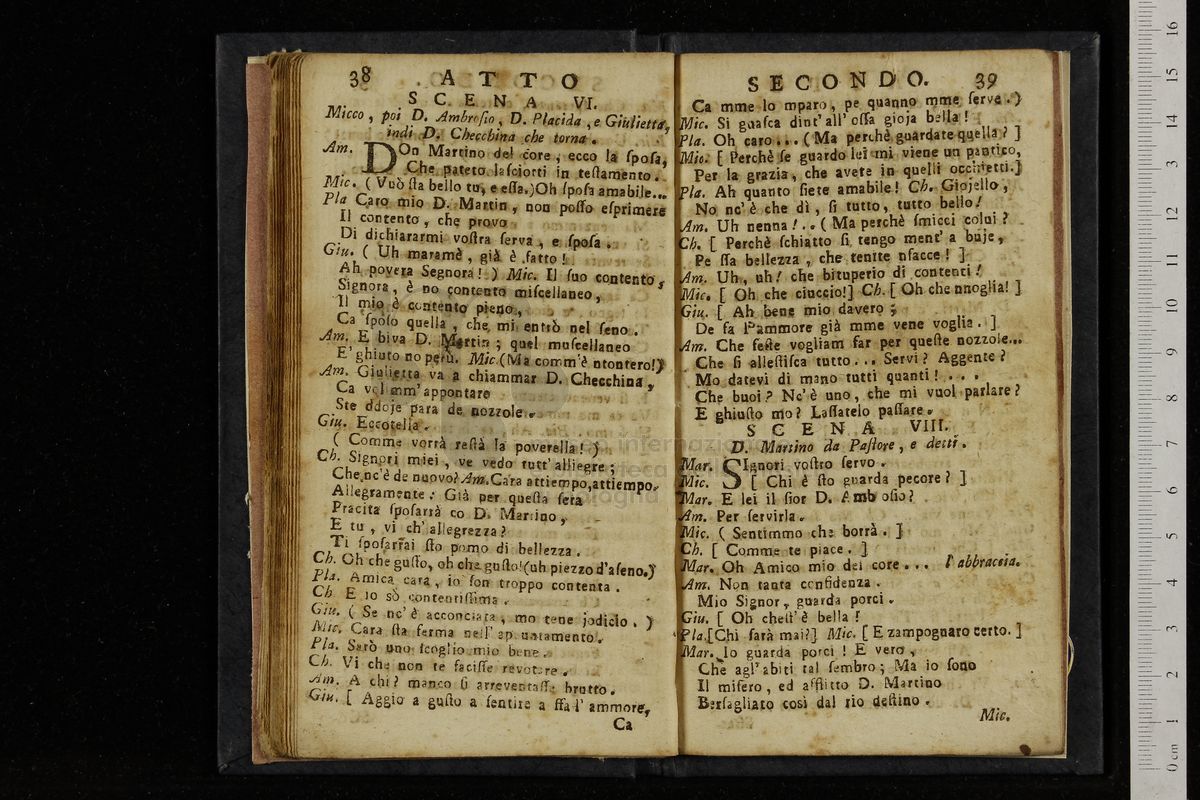 38 ATTO
SCENA VI.
Micco, poi D. Ambrosio, D. Placida, e Giulietta,
indi D. Checchina che torna.
Am. DOn Martino del core, ecco la ſpoſa,
Che pateto laſciotti in teſtamento.
Mic. (Vuò ſta bello tu, e eſſa.) Oh ſpoſa amabile...
Pla Caro mio D. Martin, non poſſo eſprimere
Il contento, che provo
Di dichiararmi voſtra ſerva, e ſpoſa.
Giu. ( Uh maramè, già è fatto!
Ah povera Segnora! ) Mic. Il ſuo contento,
Signora, è no contento miſcellaneo,
Il mio è contento pieno,
Ca ſpoſo quella, che mi entrò nel ſeno.
Am. E biva D. Martin; quel muſcellaneo
E' ghiuto no perù. Mic. (Ma comm'è ntontero!)
Am. Giulietta va a chiammar D. Checchina,
Ca vol mm'appontare
Ste ddoje para de nozzole.
Giu. Eccotella.
( Comme vorrà reſtà la poverella! )
Ch. Signori miei, ve vedo tutt'alliegre;
Che nc'è de nuovo? Am. Cara attiempo, attiempo.
Allegramente: Già per queſta ſera
Pracita ſpoſarrà co D. Martino,
E tu, vi ch'allegrezza?
Ti ſpoſarrai ſto pomo di bellezza.
Ch. Oh che guſto, oh che guſto! (uh piezzo d'aſeno.)
Pla. Amica cara, io ſon troppo contenta.
Ch. E io sò contentiſſima.
Giu. ( Se nc'è acconciata, mo tene jodicio. )
Mic. Cara ſta ferma nell'appuntamento.
Pla. Sarò uno ſcoglio mio bene.
Ch. Vi che non te faciſſe revotare.
Am. A chi? manco ſi arreventaſſe brutto.
Giu. [ Aggio a guſto a ſentire a ſſa l'ammore,
Ca
SECONDO. 39
Ca mme lo mparo, pe quanno mme ſerve.)
Mic. Si guaſca dint'all'oſſa gioja bella!
Pla. Oh caro... (Ma perchè guardate quella? ]
Mic. [ Perchè ſe guardo lei mi viene un pantico,
Per la grazia, che avete in quelli occhietti.]
Pla. Ah quanto ſiete amabile! Ch. Giojello,
No nc'è che dì, ſi tutto, tutto bello!
Am. Uh nenna!.. (Ma perchè ſmicci colui?
Ch. [ Perchè ſchiatto ſi tengo ment'a buje,
Pe ſſa bellezza, che tenite nfacce! ]
Am. Uh, uh! che bituperio di contenti!
Mic. [ Oh che ciuccio!] Ch. [ Oh che nnoglia! ]
Giu. [ Ah bene mio davero;
De fa l'ammore già mme vene voglia. ]
Am. Che feſte vogliam far per queſte nozzole...
Che ſi alleſtiſca tutto... Servi? Aggente?
Mo datevi di mano tutti quanti!....
Che buoi? Nc'è uno, che mi vuol parlare?
E ghiuſto mo? Laſſatelo paſſare.
SCENA VIII.
D. Martino da Paſtore, e detti.
Mar. SIgnori voſtro ſervo.
Mic. [ Chi è ſto guarda pecore? ]
Mar. E lei il ſior D. Ambroſio?
Am. Per ſervirla.
Mic. ( Sentimmo che borrà. ]
Ch. [ Comme te piace. ]
Mar. Oh Amico mio del core... l'abbraccia.
Am. Non tanta confidenza.
Mio Signor, guarda porci.
Giu. [ Oh cheſt'è bella!
Pla. [Chi ſarà mai?] Mic. [ E zampognaro certo. ]
Mar. Io guarda porci! E vero,
Che agl'abiti tal ſembro; Ma io ſono
Il miſero, ed afflitto D. Martino
Berſagliato così dal rio deſtino.
Mic.